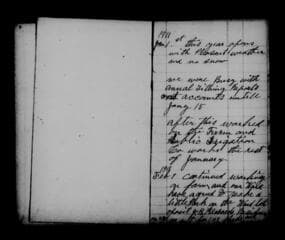 1911
Jan. 1st this year opens
with Pleasant weather
and no snow
we were Busy with
Annual Tithing Reports
and accounts untill
Jany 15
after this worked
for the Farm and
Public Irrigation
Co worked the rest
of January
1911
Feb 1 continued working
on farm and our Field
have agreed to make a
little Park on the